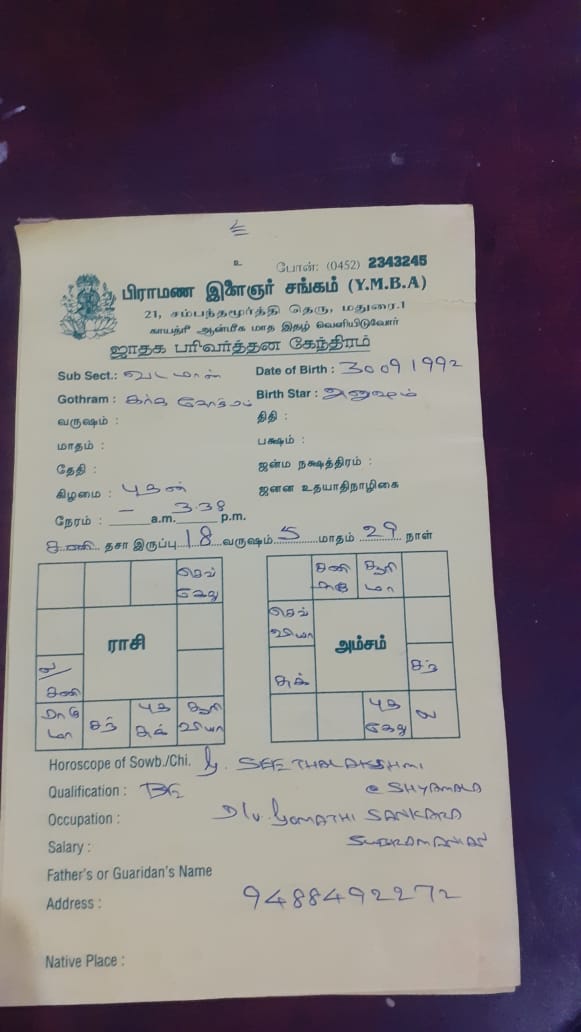 உ
போன்: (0452) 2343245
பிராமண இளைஞர் சங்கம் (Y.M.B.A)
21, சம்பந்தமூர்த்தி தெரு, மதுரை.1
காயத்ரீ ஆன்மீக மாத இதழ் வெளியிடுவோர்
ஜாதக பரிவர்த்தன கேந்திரம்
Sub Sect.: வடமாள் Date of Birth : 30 09 1992
Gothram : கர்க கோத்ரம் Birth Star : அனுஷம்
வருஷம் : திதி :
மாதம் : பக்ஷம் :
தேதி : ஜன்ம நக்ஷத்திரம் :
கிழமை : புதன் ஜனன உதயாதிநாழிகை
நேரம் : – a.m. 3.38 p.m.
சனி தசா இருப்பு 18 வருஷம் 5 மாதம் 29 நாள்
செவ் கேது
ராசி
ல/ சனி
ராகு மா சந் புத சுக் சூரி வியா
சனி ராகு சூரி மா
செவ் வியா
அம்சம்
சுக் சந்
புத கேது ல
Horoscope of Sowb./Chi. G. SEETHALAKSHMI
Qualification : BE @ SHYAMALA
Occupation : D/o. GOMATHI SANKARA
Salary : SUBRAMANIAN
Father's or Guaridan's Name
Address : 9488492272
Native Place :